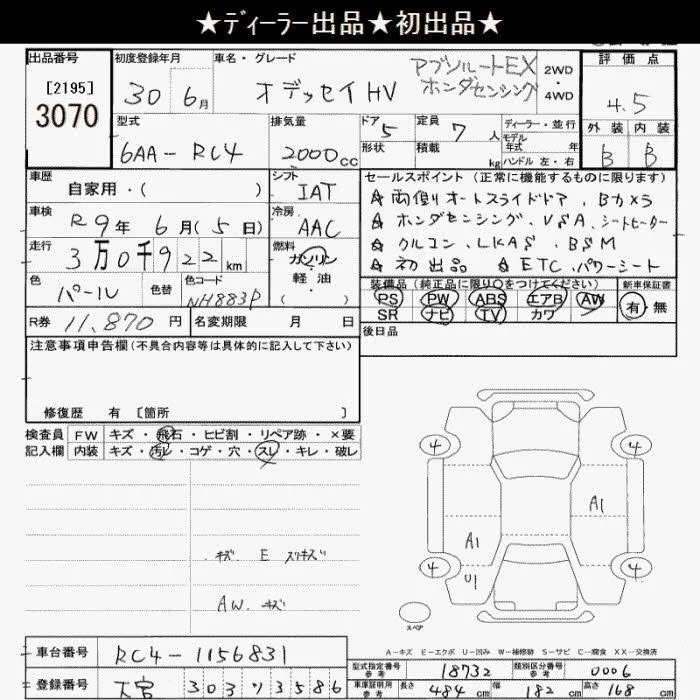 ★ディーラー出品★初出品★
出品番号
[2195]
3070
初度登録年月
30 6月
車名・グレード
オデッセイHV
アブソルートEX
ホンダセンシング
2WD
・
4WD
評価点
4.5
外装 内装
B B
型式
6AA-RC4
排気量
2000cc
ドア 5
形状
定員 7 人
積載 kg
ディーラー・並行
モデル
年式 年
ハンドル 左・右
車歴
自家用・( )
シフト
IAT
車検
R9年 6月(5日)
冷房
AAC
走行
3万0千922km
燃料
ガソリン
軽油
( )
色
パール
色替
色コード
NH883P
R券 11,870円
名変期限 月 日
セールスポイント(正常に機能するものに限ります)
☆両側オートスライドドア、Bカメラ
☆ホンダセンシング、VSA、シートヒーター
☆クルコン、LKAS、BSM
☆初出品 ☆ETC、パワーシート
装備品(純正品に限り○をつけてください)
PS PW ABS エアB AW
SR ナビ TV カワ
新車保証書
有・無
後日品
注意事項申告欄(不具合内容等は具体的に記入して下さい)
修復歴 有 [箇所 ]
検査員
記入欄
FW キズ・飛石・ヒビ割・リペア跡・×要
内装 キズ・汚レ・コゲ・穴・スレ・キレ・破レ
キズ E スリキズ
AW キズ
4 4
A1
A1
4 4
U1
スペア
A-キズ E-エクボ U-凹み W-補修跡 S-サビ C-腐食 XX-交換済
車台番号 RC4-1156831
登録番号 大宮 303 ソ 3586
型式指定番号
参考
18732
類別区分番号
参考
0006
車庫証明用
参考
長さ 484cm 幅 182cm 高さ 168cm